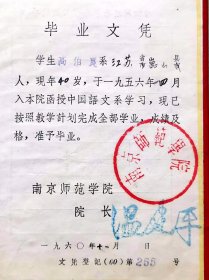 毕业文凭
学生高伯 系江苏省 山县
人，现年40岁，于一九五六年 月
入本院函授中国語文系学习，现已
按照教学計划完成全部学业，成績及
格，准予毕业。
南京师范学院
院长
南京师范学院
一九六〇年十 月 日
文凭登記(60)第265号